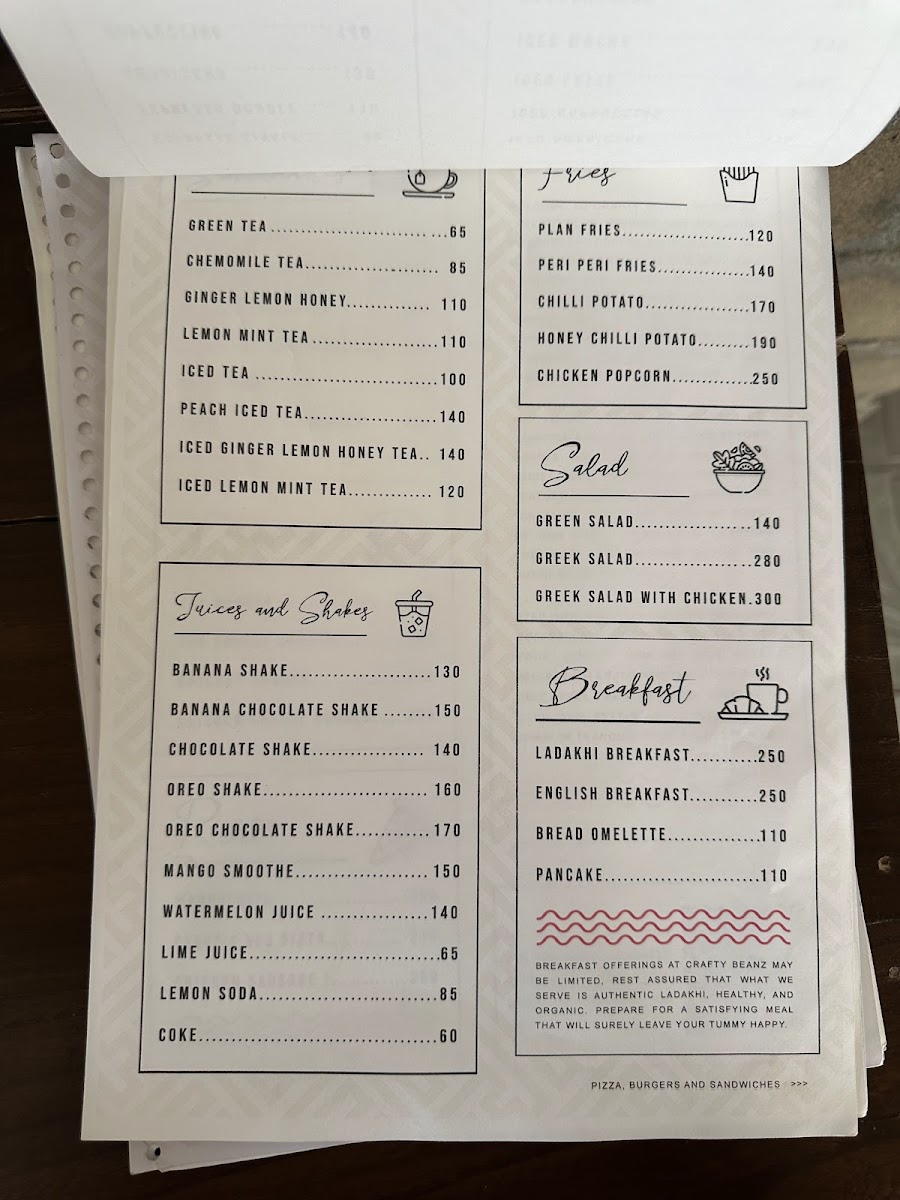 GREEN TEA..............................65
CHEMOMILE TEA...................... 85
GINGER LEMON HONEY............. 110
LEMON MINT TEA....................110
ICED TEA .............................100
PEACH ICED TEA.....................140
ICED GINGER LEMON HONEY TEA.. 140
ICED LEMON MINT TEA............. 120
Juices and Shakes
BANANA SHAKE.......................130
BANANA CHOCOLATE SHAKE ........150
CHOCOLATE SHAKE.................. 140
OREO SHAKE.......................... 160
OREO CHOCOLATE SHAKE............170
MANGO SMOOTHE..................... 150
WATERMELON JUICE ..................140
LIME JUICE...............................65
LEMON SODA.............................85
COKE.......................................60
Fries
PLAN FRIES.....................120
PERI PERI FRIES...............140
CHILLI POTATO.................170
HONEY CHILLI POTATO.........190
CHICKEN POPCORN.............250
Salad
GREEN SALAD...................140
GREEK SALAD...................280
GREEK SALAD WITH CHICKEN.300
Breakfast
LADAKHI BREAKFAST...........250
ENGLISH BREAKFAST...........250
BREAD OMELETTE...............110
PANCAKE.........................110
BREAKFAST OFFERINGS AT CRAFTY BEANZ MAY
BE LIMITED, REST ASSURED THAT WHAT WE
SERVE IS AUTHENTIC LADAKHI, HEALTHY, AND
ORGANIC. PREPARE FOR A SATISFYING MEAL
THAT WILL SURELY LEAVE YOUR TUMMY HAPPY.
PIZZA, BURGERS AND SANDWICHES >>>